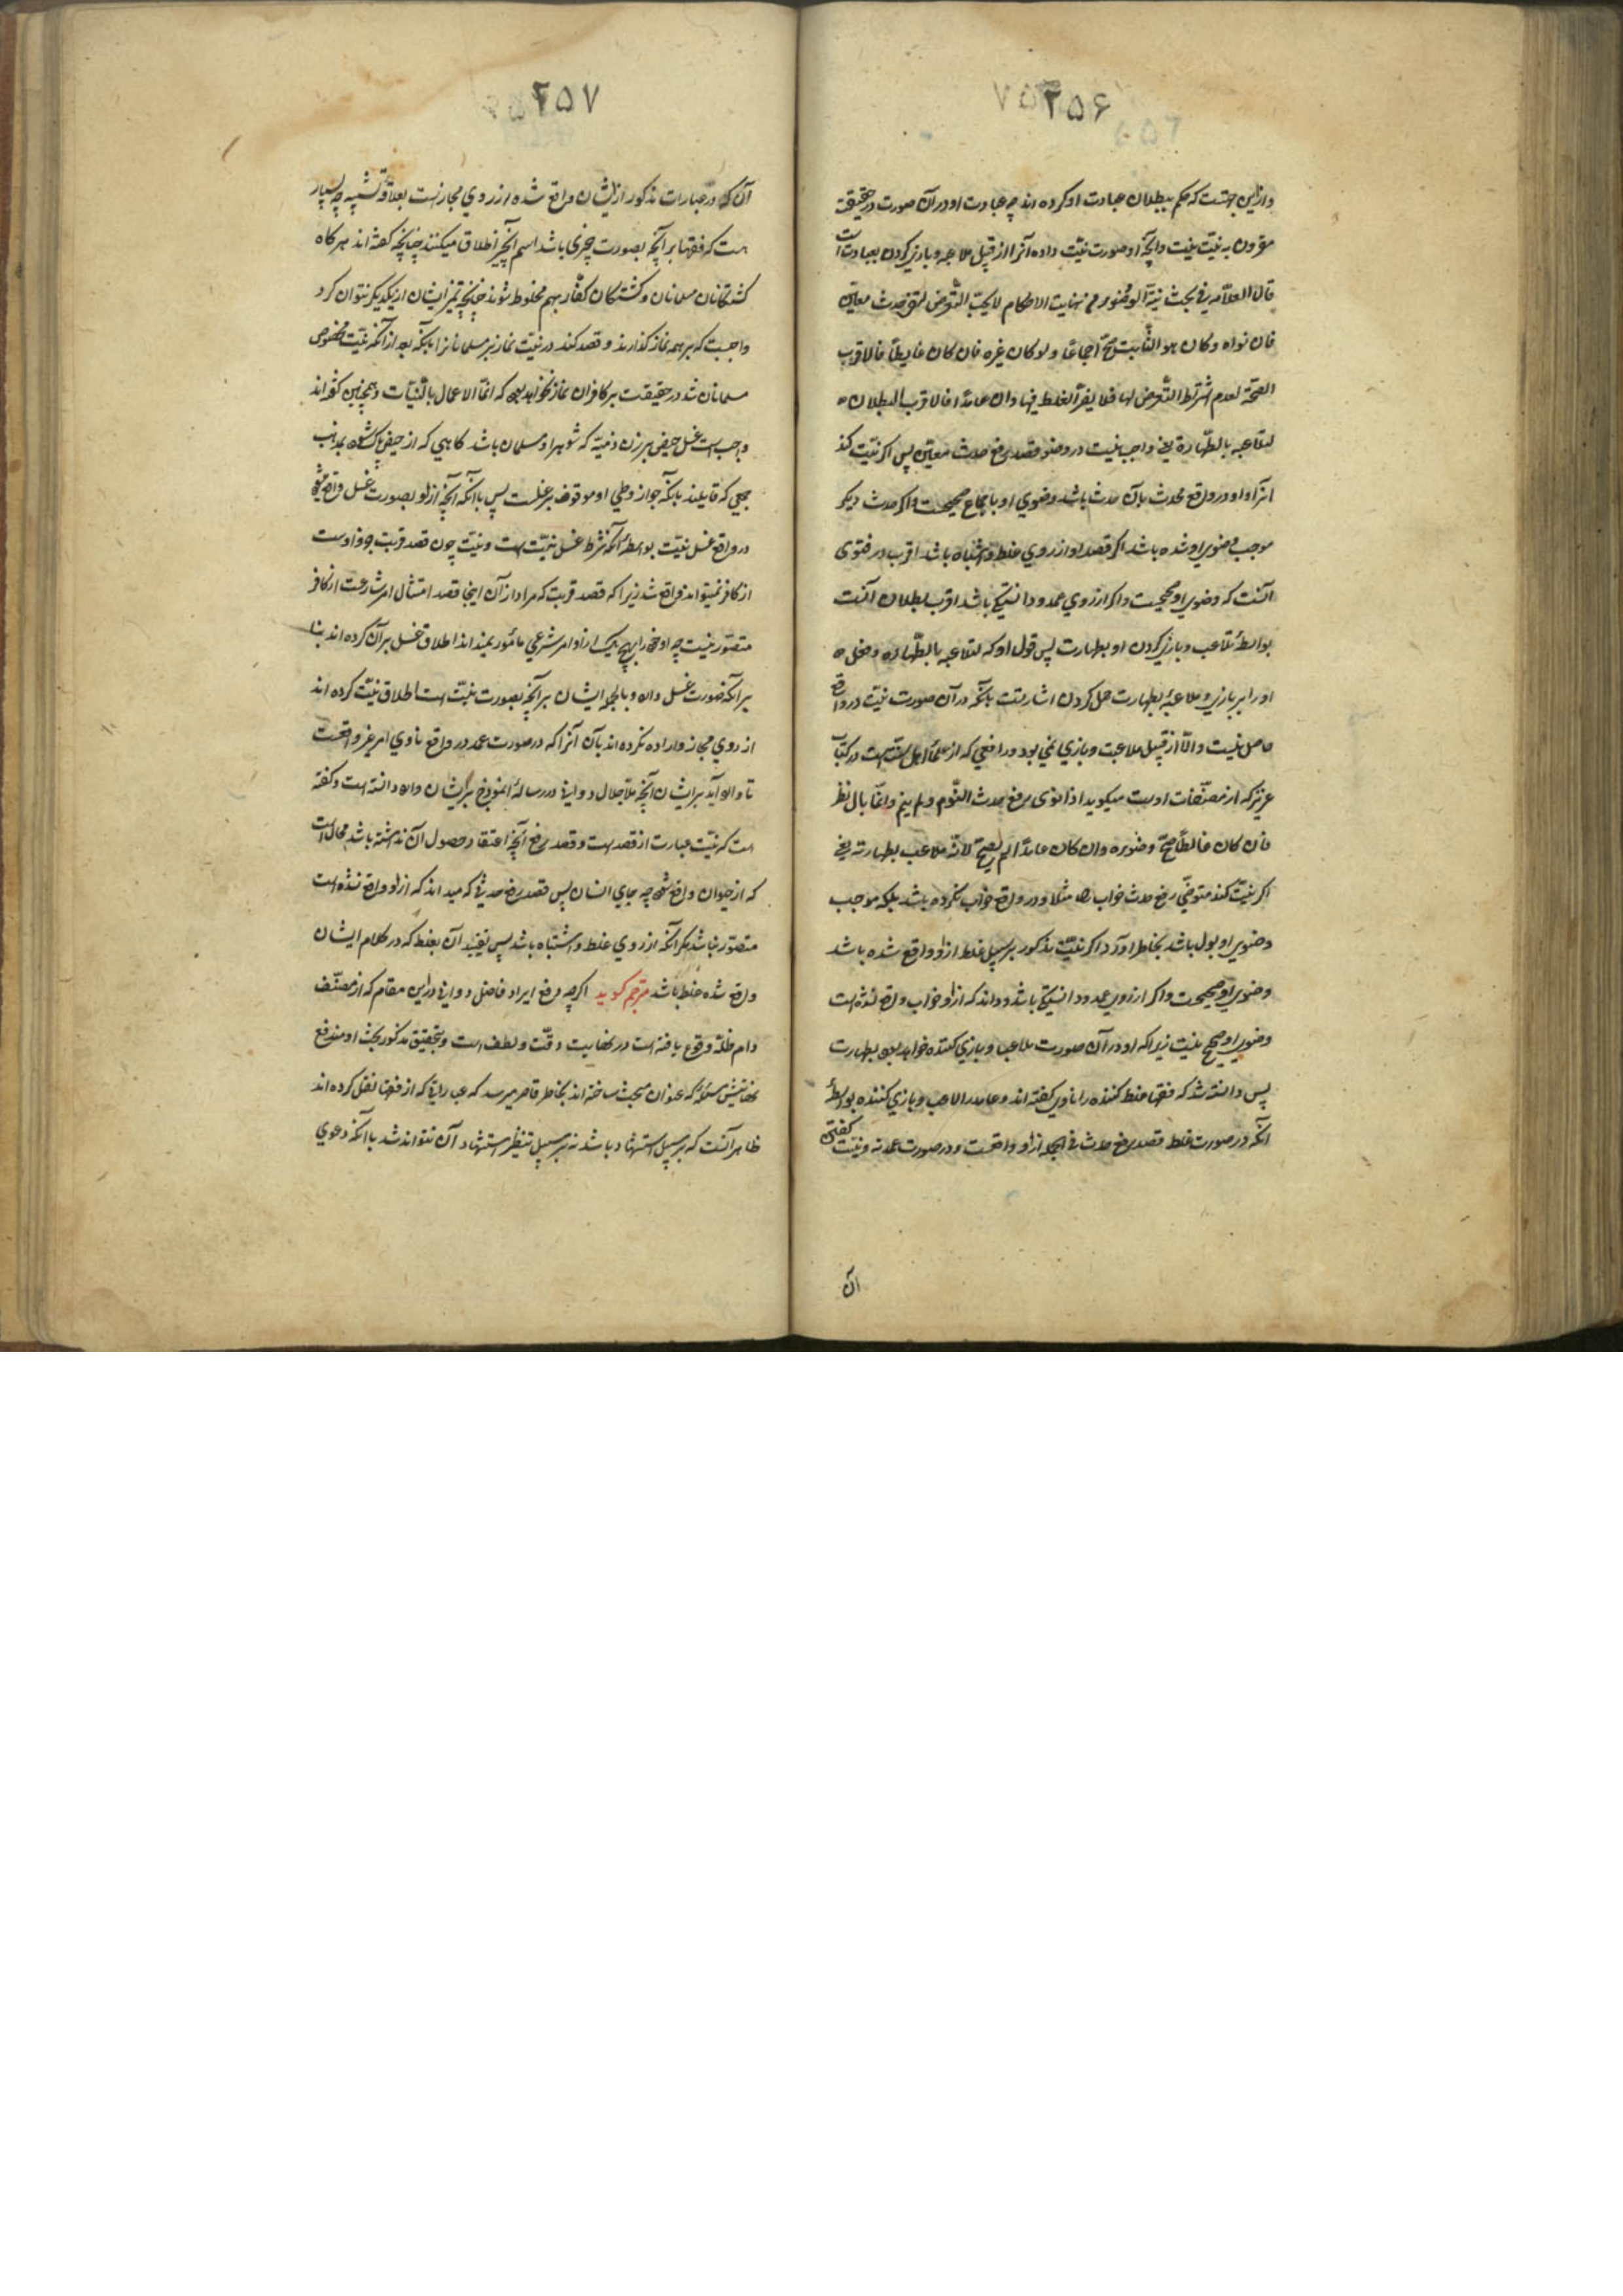 ۲۵۶
و از این جهتست که حکم ببطلان عبادت او کرده اند چه عبادت او در آن صورت در حقیقت
مقرون به نیّت نیست و آنچه او صورت نیّت داده آنرا از قبیل ملاعبه و بازی کردن بعبادت است
قال العلّامه فی بحث نیّة الوضوء من نهایت الاحکام لا یجب التّعرض لنفی حدث معیّن
فان نواه و کان هو الثّابت صحّ اجماعًا و لو کان غیره فان کان غالطًا فالاقرب
الصحّة لعدم اشتراط التّعرض لها فلا یضرّ الغلط فیها و ان کان عامدًا فالاقرب البطلان
لتلاعبه بالطّهارة یعنی واجب نیست در وضو قصد رفع حدث معیّن پس اکر نیّت کند
آنرا و او در واقع محدث بآن حدث باشد وضوی او باجماع صحیحست و اکر حدث دیکر
موجب وضوی او شده باشد اکر قصد او از روی غلط و اشتباه باشد اقرب در فتوی
آنست که وضوی او صحیحست و اکر از روی عمد و دانستکی باشد اقرب بطلان آنست
بواسطهٔ تلاعب و بازی کردن او بطهارت پس قول او که لتلاعبه بالطّهاره و فعل
او را بر بازی و ملاعبهٔ بطهارت حمل کردن اشارتست بآنکه در آن صورت نیّت در واقع
حاصل نیست و الّا از قبیل ملاعبت و بازی نمی بود و رافعی که از علمأ اهل سنّت است در کتاب
عزیز که از مصنّفات اوست میکوید اذا نوی رفع حدث النّوم و لم ینم و انّما بال نظر
فان کان غالطًا صحّ وضوءه و ان کان عامدًا لم یصحّ لانّه ملاعب بطهارته یعنی
اکر نیّت کند متوضّی رفع حدث خواب را مثلا و در واقع خواب نکرده باشد بلکه موجب
وضوی او بول باشد بخاطر آورد اکر نیّت مذکور بر سبیل غلط از او واقع شده باشد
وضوی او صحیحست و اکر از روی عمد و دانستکی باشد و داند که از او خواب واقع نشده است
وضوی او صحیح نیست زیرا که او در آن صورت ملاعب و بازی کننده خواهد بود بطهارت
پس دانسته شد که فقها غلط کننده را ناوی کفته اند و عامد را لاعب و بازی کننده بواسطهٔ
آنکه در صورت غلط قصد رفع حدث فی الجمله از او واقعست و در صورت عمد نه و نیّت کفتن
آن
۲۵۷
آن که در عبارات مذکور از ایشان واقع شده از روی مجازست بعلاقهٔ تشبیه چه بسیار
است که فقها بر آنچه بصورت چیزی باشد اسم آنچیز اطلاق میکنند چنانچه کفته اند هر کاه
کشتکان مسلمانان و کشتکان کفّار بهم مخلوط شوند چنانچه تمیز ایشان از یکدیکر نتوان کرد
واجبست که بر همه نماز کذارند و قصد کنند در نیّت نماز بر مسلمانرا با آنکه بعد از آنکه نیّت مخصوص
مسلمانان شد در حقیقت بر کافران نماز نخواهد بود که انّما الاعمال بالنّیّات و همچنین کفته اند
واجب است غسل حیض بر زن ذمیّه که شوهر او مسلمان باشد کاهی که از حیض پاک شود بمذهب
جمعی که قایلند بآنکه جواز وطی او موقوف بر غسلست پس با آنکه آنچه از او بصورت غسل واقع میشود
در واقع غسل نیست بواسطهٔ آنکه شرط غسل نیّت است و نیّت چون قصد قربت جزو اوست
از کافر نمیتواند واقع شد زیرا که قصد قربت که مراد از آن اینجا قصد امتثال امر شارعست از کافر
متصوّر نیست چه او خود را بهیچ یک از اوامر شرعی مأمور نمیداند اطلاق غسل بر آن کرده اند بنا
بر آنکه صورت غسل دارد و بالجمله ایشان بر آنچه بصورت نیّت است اطلاق نیّت کرده اند
از روی مجاز و اراده نکرده اند بآن آنرا که در صورت عمد در واقع ناوی امر غیر واقعست
تا وارد آید بر ایشان آنچه ملا جلال دوانی در رسالهٔ انموذج بر ایشان وارد دانسته است و کفته
است که نیّت عبارت از قصد است و قصد رفع آنچه اعتقاد حصول آن نداشته باشد محال است
که از حیوان واقع شود چه جای انسان پس قصد رفع حدثی که میداند که از او واقع نشده است
متصوّر نباشد مکر آنکه از روی غلط و اشتباه باشد پس تقیید آن بغلط که در کلام ایشان
واقع شده غلط باشد مترجم کوید اکر چه دفع ایراد فاضل دوانی در این مقام که از مصنّف
دام ظلّه وقوع یافته است در نهایت دقّت و لطف است و بتحقیق مذکور بحث او مندفع
نهایتش مسئلهٔ که عنوان مبحث ساخته اند بخاطر قاصر میرسد که عبارایی که از فقها نقل کرده اند
ظاهر آنست که بر سبیل استشهاد باشد نه بر سبیل تنظیر استشهاد آن نتواند شد با آنکه دعوی